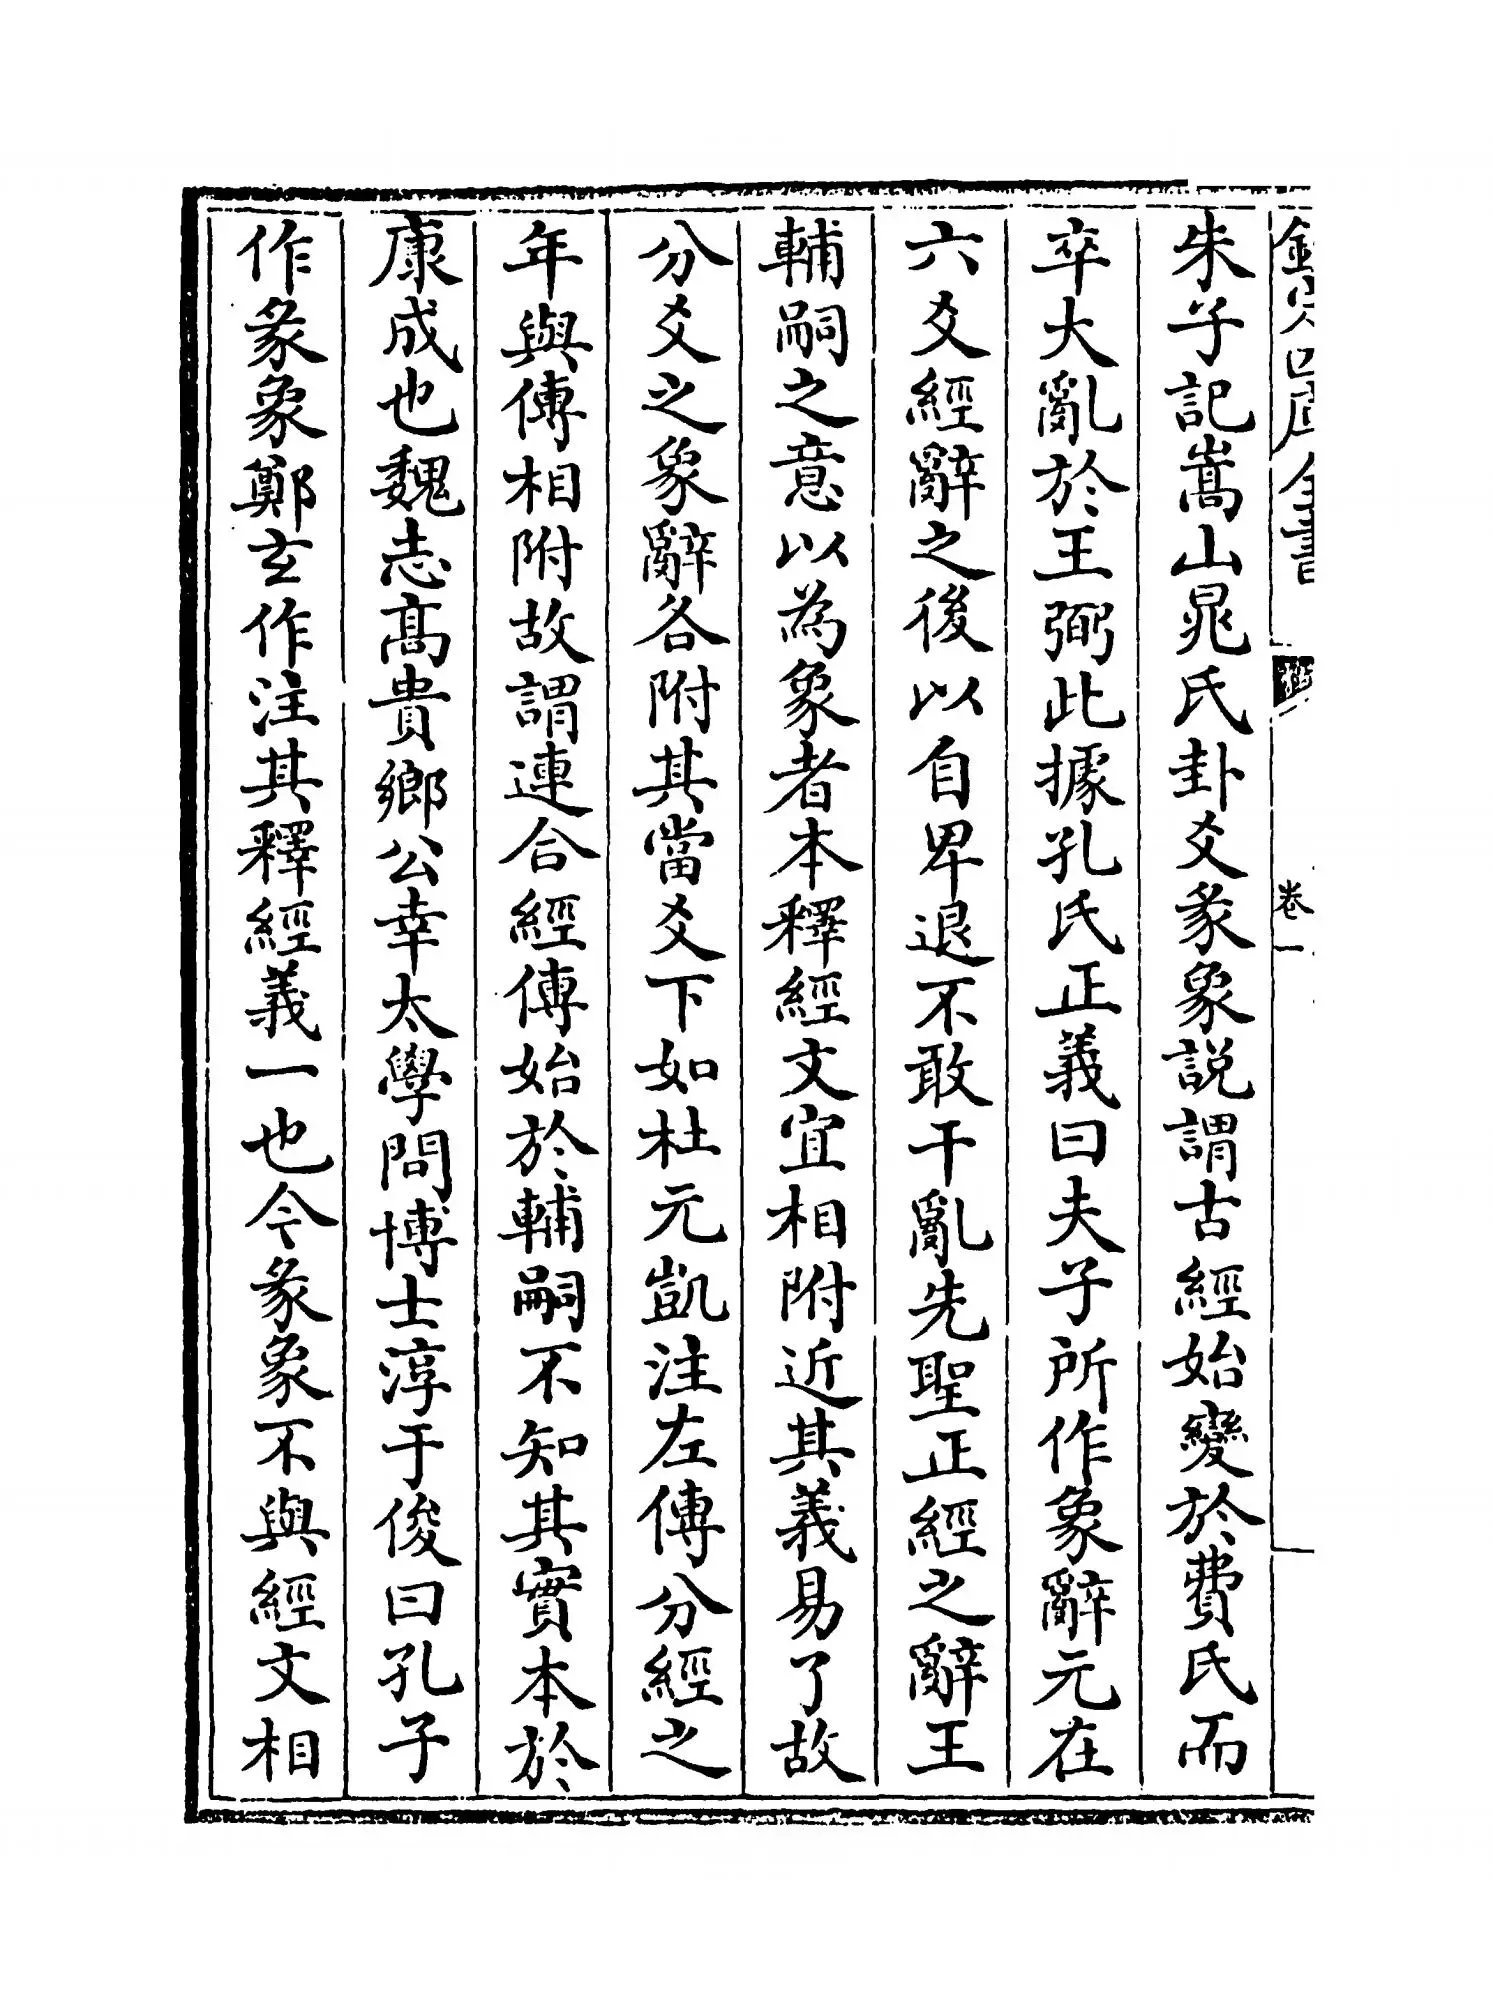 欽定四庫全書
卷一
朱子記嵩山晁氏卦爻彖象說謂古經始變於費氏而
卒大亂於王弼此據孔氏正義曰夫子所作象辭元在
六爻經辭之後以自卑退不敢干亂先聖正經之辭王
輔嗣之意以為象者本釋經文宜相附近其義易了故
分爻之象辭各附其當爻下如杜元凱注左傳分經之
年與傳相附故謂連合經傳始於輔嗣不知其實本於
康成也魏志高貴鄉公幸太學問博士淳于俊曰孔子
作彖象鄭玄作注其釋經義一也今彖象不與經文相